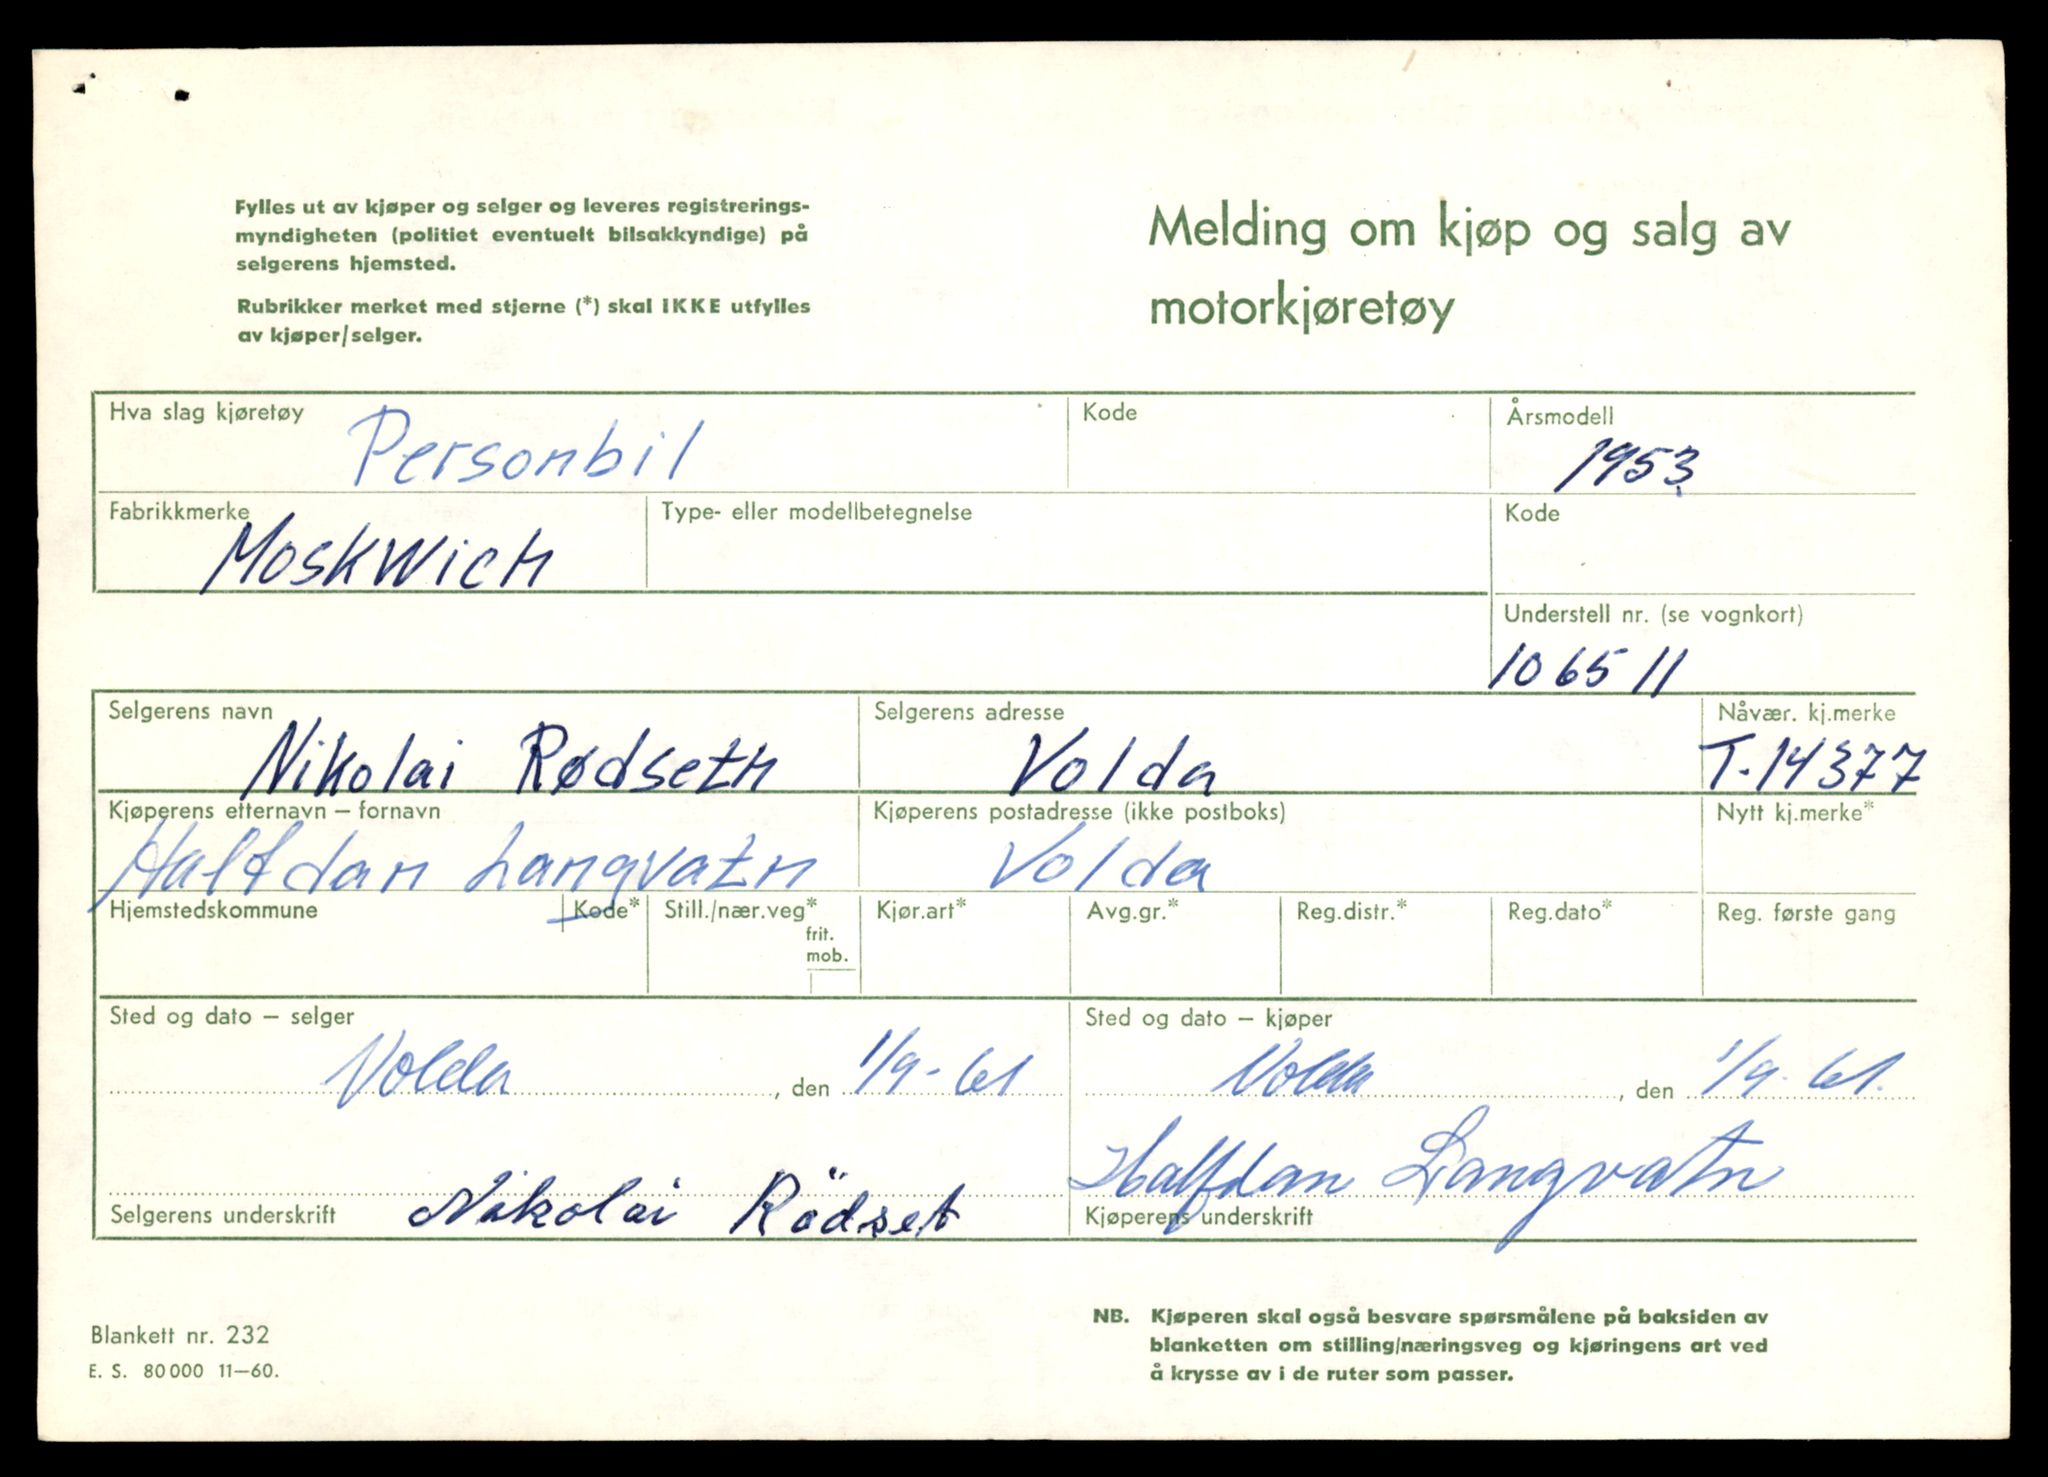 Fylles ut av kjøper og selger og leveres registrerings-
myndigheten (politiet eventuelt bilsakkyndige) på
selgerens hjemsted.
Rubrikker merket med stjerne (*) skal IKKE utfylles
av kjøper/selger.
Melding om kjøp og salg av
motorkjøretøy
Hva slag kjøretøy
Personbil
Kode
Årsmodell
1953
Fabrikkmerke
Moskwich
Type- eller modellbetegnelse
Kode
Understell nr. (se vognkort)
106511
Selgerens navn
Nikolai Rødseth
Selgerens adresse
Volda
Nåvær. kj.merke
T-14377
Kjøperens etternavn – fornavn
Halfdan Langvatn
Kjøperens postadresse (ikke postboks)
Volda
Nytt kj.merke*
Hjemstedskommune
Kode*
Still./nær.veg*
frit.
mob.
Kjør.art*
Avg.gr.*
Reg.distr.*
Reg.dato*
Reg. første gang
Sted og dato – selger
Volda, den 1/9-61
Sted og dato – kjøper
Volda, den 1/9-61.
Selgerens underskrift Nikolai Rödset
Halfdan Langvatn
Kjøperens underskrift
Blankett nr. 232
E. S. 80000 11–60.
NB. Kjøperen skal også besvare spørsmålene på baksiden av
blanketten om stilling/næringsveg og kjøringens art ved
å krysse av i de ruter som passer.